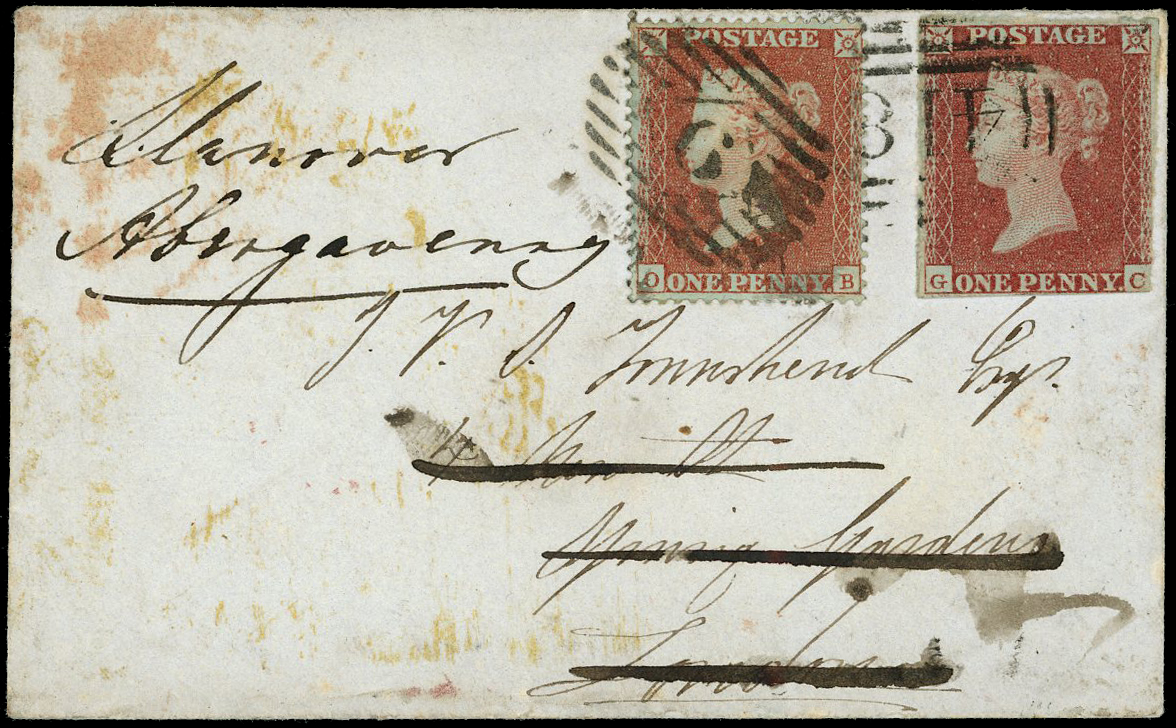 POSTAGE
ONE PENNY
O B
POSTAGE
ONE PENNY
G C
Llanover
Abergavenny
Townshend Esqr.
4
Spring Gardens
London